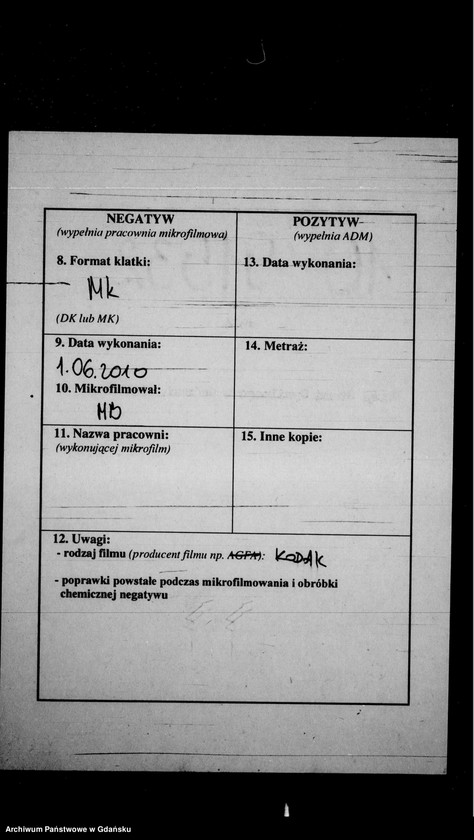 NEGATYW
(wypełnia pracownia mikrofilmowa)
8. Format klatki:
Mk
(DK lub MK)
9. Data wykonania:
1.06.2010
10. Mikrofilmował:
MB
11. Nazwa pracowni:
(wykonującej mikrofilm)
POZYTYW
(wypełnia ADM)
13. Data wykonania:
14. Metraż:
15. Inne kopie:
12. Uwagi:
- rodzaj filmu (producent filmu np. AGFA): KODAK
- poprawki powstałe podczas mikrofilmowania i obróbki
chemicznej negatywu
Archiwum Państwowe w Gdańsku